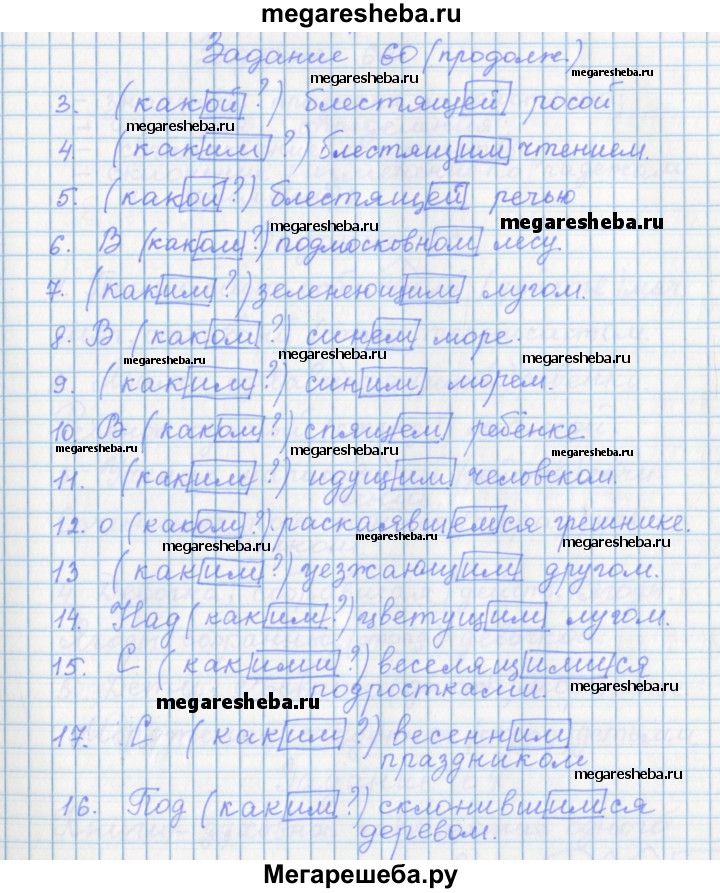 megaresheba.ru
Задание 60 (продолж.)
megaresheba.ru
megaresheba.ru
3. (какой?) блестящей росой
megaresheba.ru
4. (каким?) блестящим чтением.
5. (какой?) блестящей речью
megaresheba.ru
megaresheba.ru
6. В (каком?) подмосковном лесу.
7. (каким?) зеленеющим лугом.
megaresheba.ru
8. В (каком?) синем море.
megaresheba.ru
megaresheba.ru
megaresheba.ru
9. (каким?) синим морем.
10. В (каком?) спящем ребёнке
megaresheba.ru
megaresheba.ru
megaresheba.ru
11. (каким?) идущим человеком.
12. о (каком?) раскаявшемся грешнике.
megaresheba.ru
megaresheba.ru
megaresheba.ru
13 (каким?) уезжающим другом.
14. Над (каким?) цветущим лугом.
15. С (какими?) веселящимися
подростками.
megaresheba.ru
megaresheba.ru
17. С (каким?) весенним
праздником
megaresheba.ru
16. Под (каким?) склонившимся
деревом.
Мегарешеба.ру